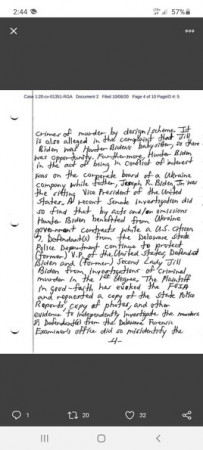 2:44
57%
Case 1:20-cv-01351-RGA Document 2 Filed 10/06/20 Page 4 of 13 PageID #: 5
crimes of murder by design/scheme. It
is also alleged in the complaint that Jill
Biden was Hunter Biden's babysitter, so there
was opportunity. Furthermore, Hunter Biden
in the act of being in conflict of interest
was on the corporate board of a Ukraine
company while father, Joseph R. Biden, Jr. was
the sitting Vice President of the United
States. A recent Senate investigation did
so find that by acts and/or omissions
Hunter Biden benefitted from Ukraine
government contracts while a U.S. citizen
Defendant(s) from the Delaware State
Police Department continue to protect
(former) V.P. of the United States, Defendant
Biden and (former) Second Lady Jill
Biden from investigations of criminal
murder in the 1st degree. The Plaintiff
in good-faith has evoked the FOIA
and requested a copy of the State Police
Reports, copy of photos, and other
evidence to independently investigate the murders
Defendant(s) from the Delaware Forensic
Examiner's office did so misidentify the
-4-
1
20
32